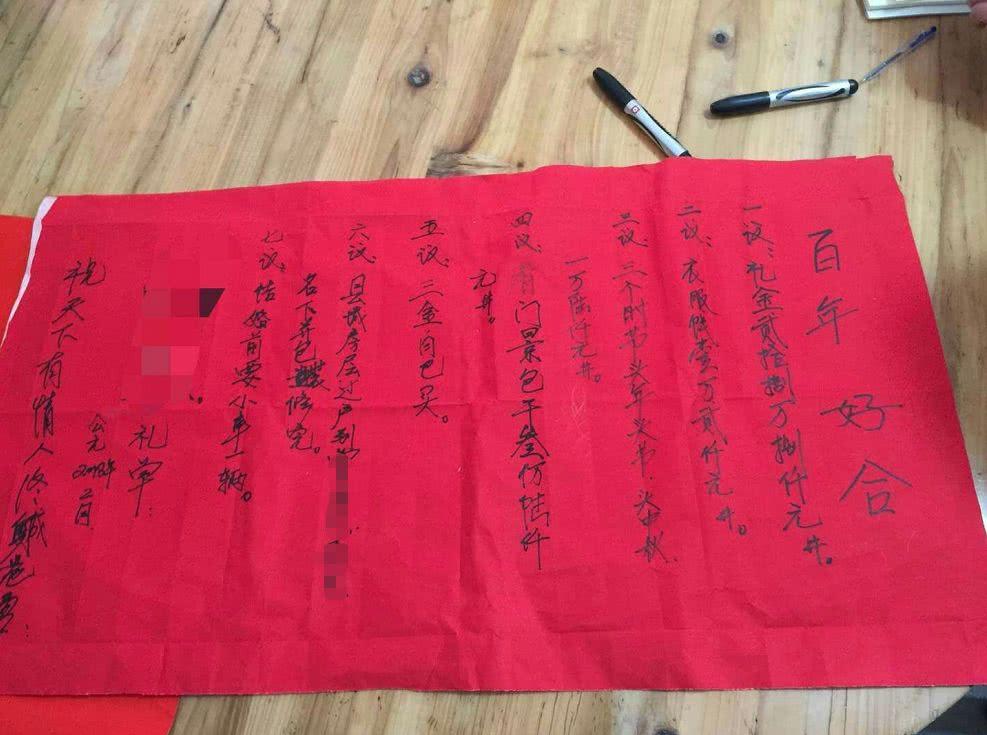 百年好合
一议：礼金贰拾捌万捌仟元井。
二议：衣服钱壹万贰仟元井。
三议：三个时节头年头节．头中秋．
一万陆仟元井。
四议：门景包干叁仂陆仟
元井。
五议：三金自巴买。
六议：县城房屋过户到
名下并包装修完。
七议：结婚前要小车一辆。
礼单：
公元2018年二月
祝天下有情人终